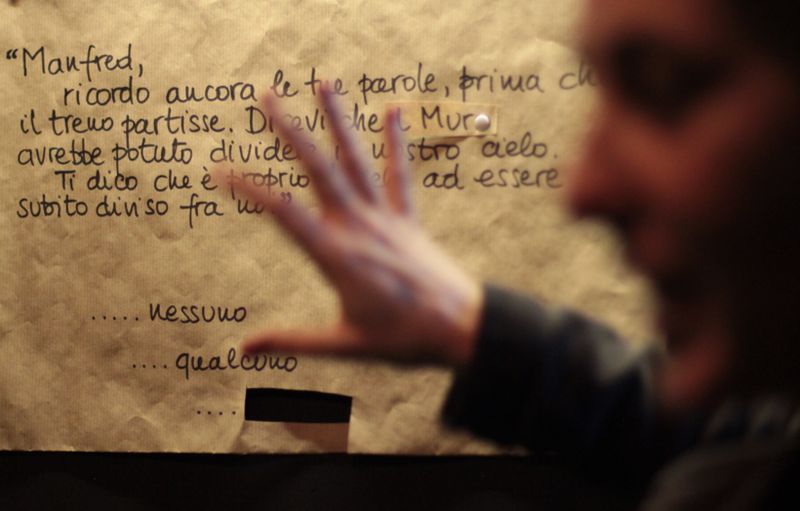 “Manfred,
ricordo ancora le tue parole, prima ch
il treno partisse. Dicevi che il Muro
avrebbe potuto dividere il nostro cielo.
Ti dico che è proprio ad essere
subito diviso fra noi.”
..... nessuno
.... qualcuno
....